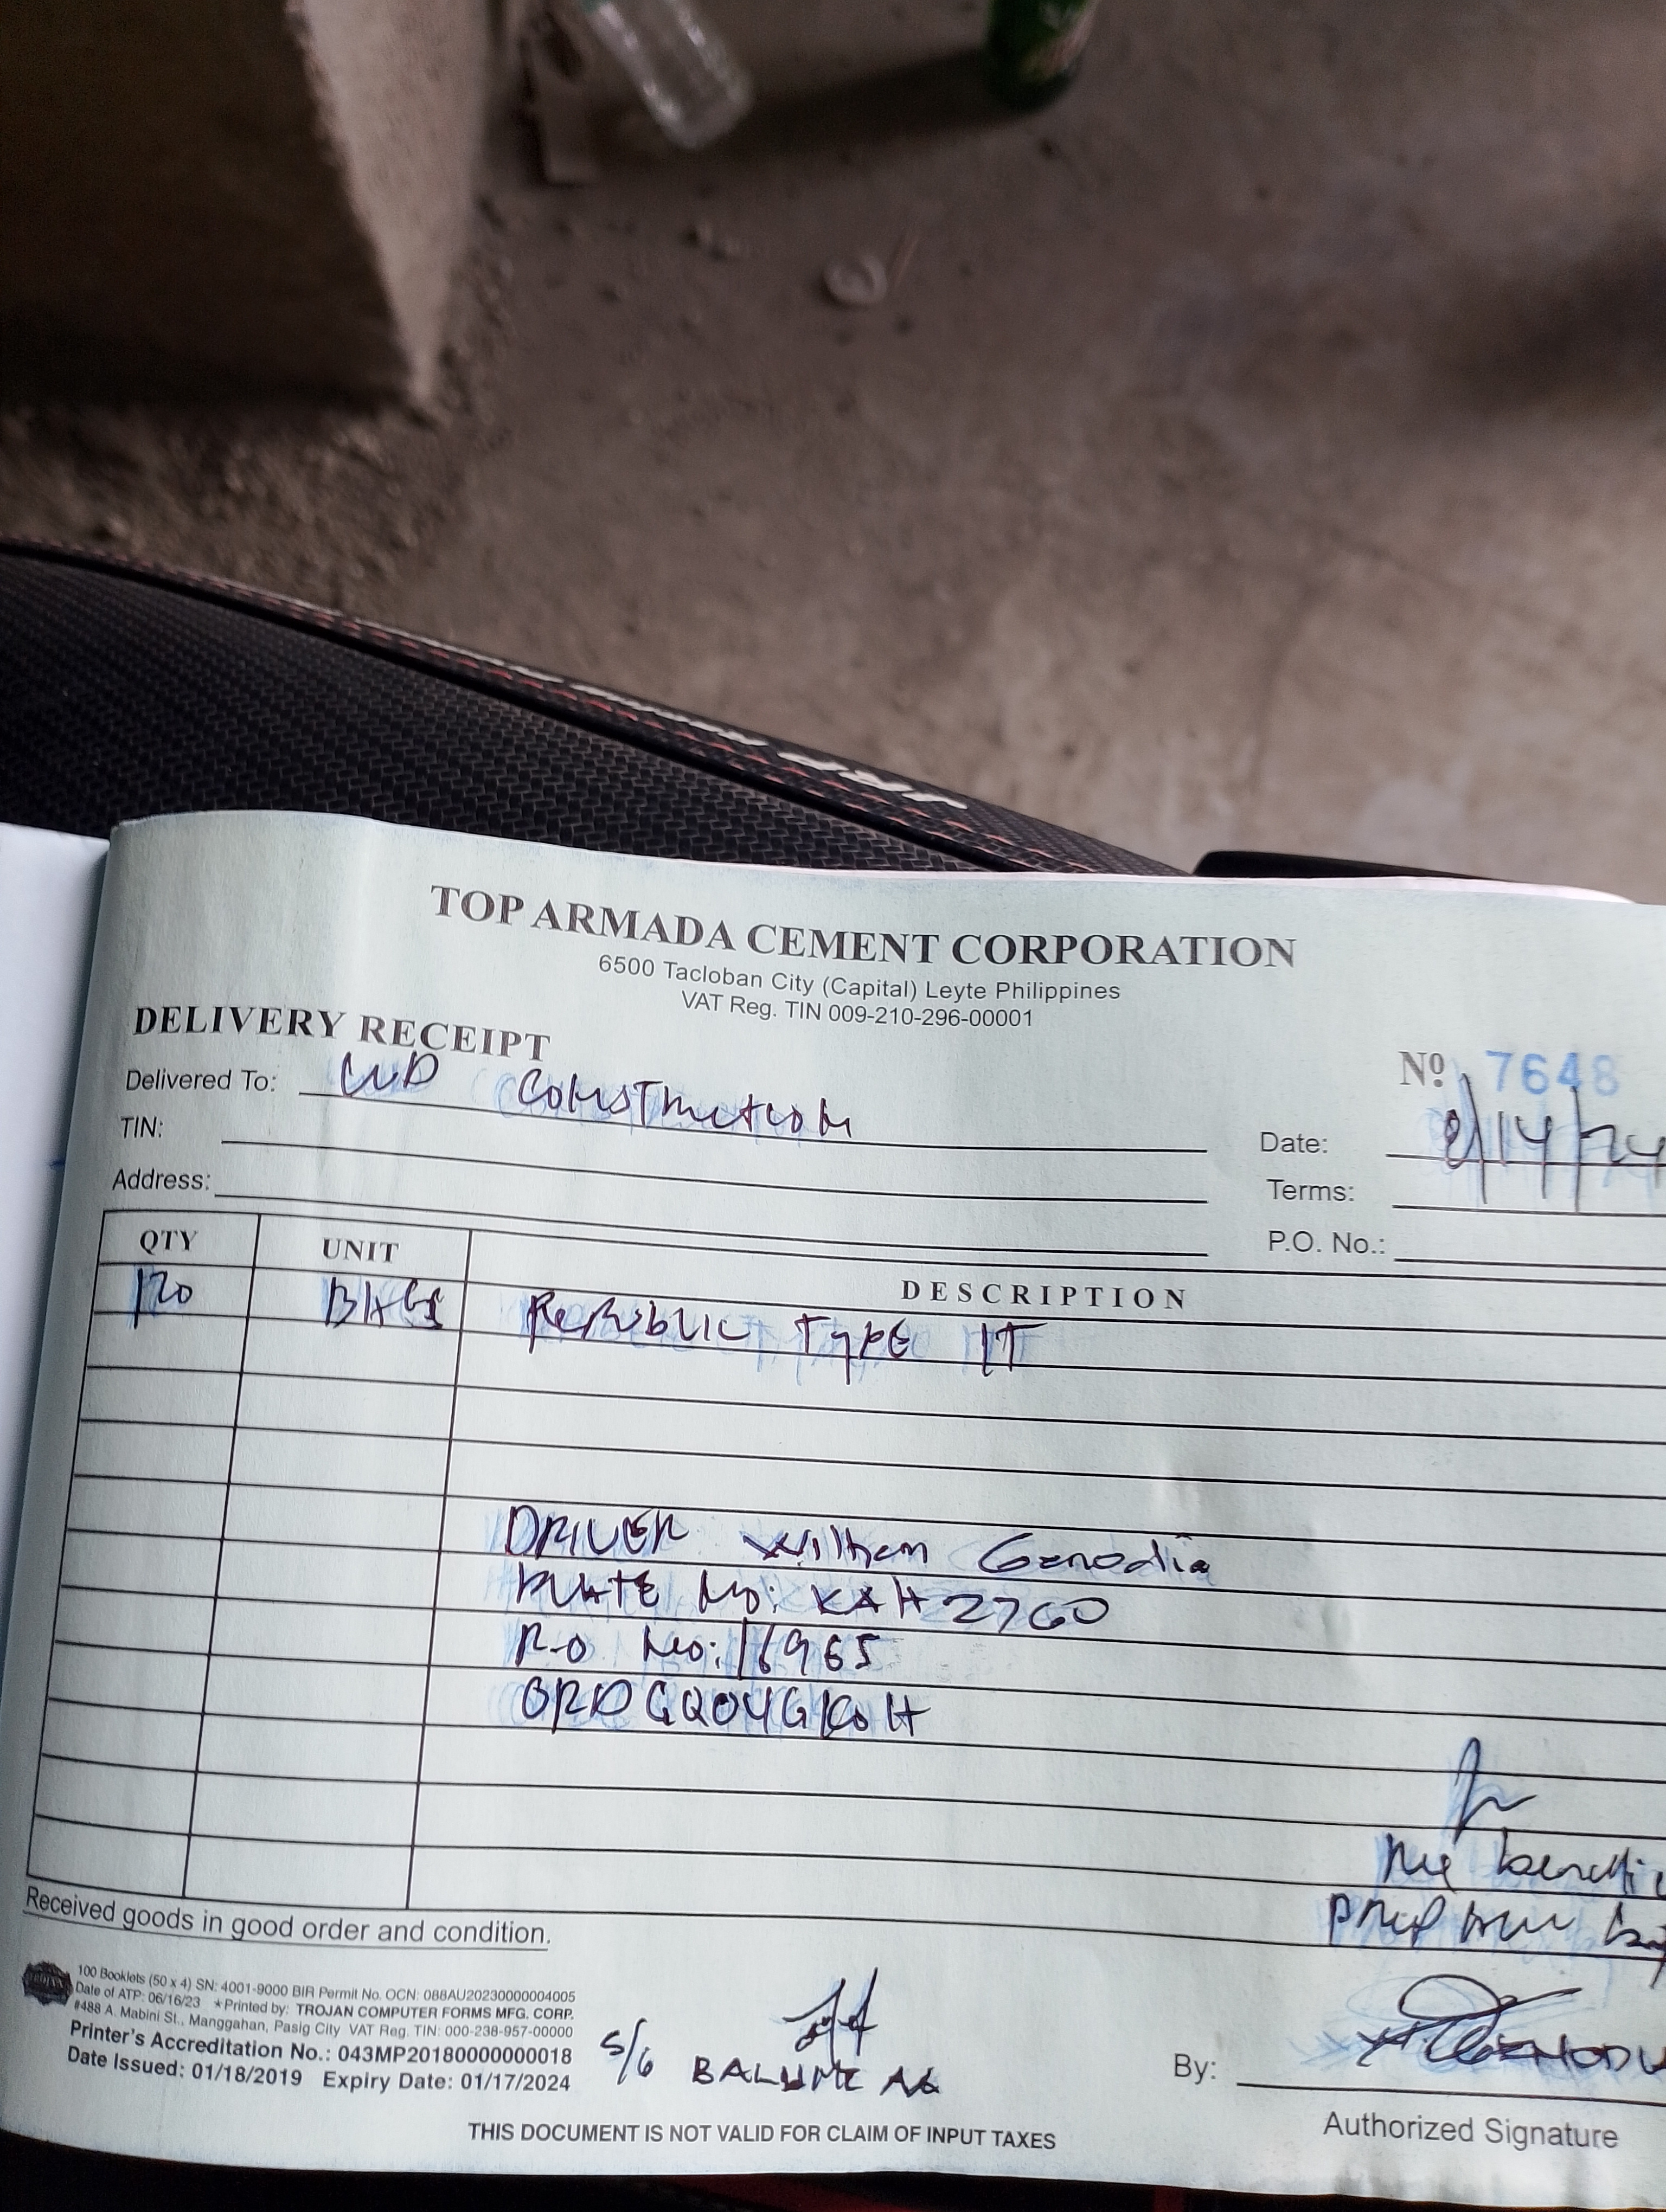 TOP ARMADA CEMENT CORPORATION
6500 Tacloban City (Capital) Leyte Philippines
VAT Reg. TIN 009-210-296-00001
DELIVERY RECEIPT
Nº 7648
Delivered To: Construction
Date: 8/14/24
TIN:
Terms:
Address:
P.O. No.:
QTY UNIT DESCRIPTION
120 BAGS REPUBLIC TYPE 1T
DRIVER William Genodia
PLATE No: KAH 2760
P.O No: 16965
Received goods in good order and condition.
100 Booklets (50 x 4) SN: 4001-9000 BIR Permit No. OCN: 088AU20230000004005
Date of ATP: 06/16/23 *Printed by: TROJAN COMPUTER FORMS MFG. CORP.
#488 A. Mabini St., Manggahan, Pasig City VAT Reg. TIN: 000-238-957-00000
Printer's Accreditation No.: 043MP20180000000018
Date Issued: 01/18/2019 Expiry Date: 01/17/2024
S/G
By:
Authorized Signature
THIS DOCUMENT IS NOT VALID FOR CLAIM OF INPUT TAXES